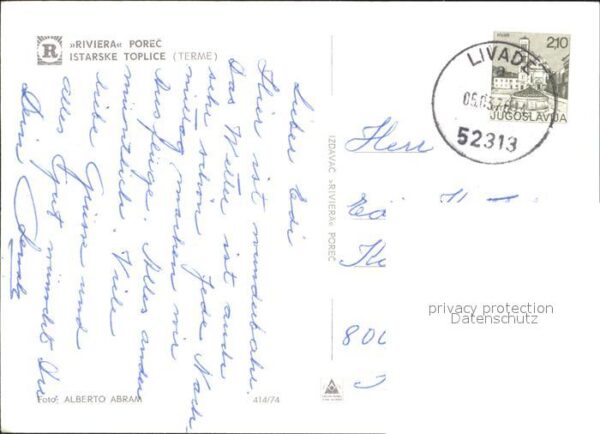 »RIVIERA« POREČ
ISTARSKE TOPLICE (TERME)
Lieber Edi
Hier ist wunderbahr.
Das Wetter ist auch
sehr schön. Jede Nach-
mittag machen wir
Ausflüge. Alles andere
mündlich. Viele
liebe Grüsse und
alles Gut wünscht Dir
Dein
Foto: ALBERTO ABRAM
414/74
IZDAVAČ »RIVIERA« POREČ
2,10
JUGOSLAVIJA
LIVADE
a
05.
52313
Herr
privacy protection
Datenschutz